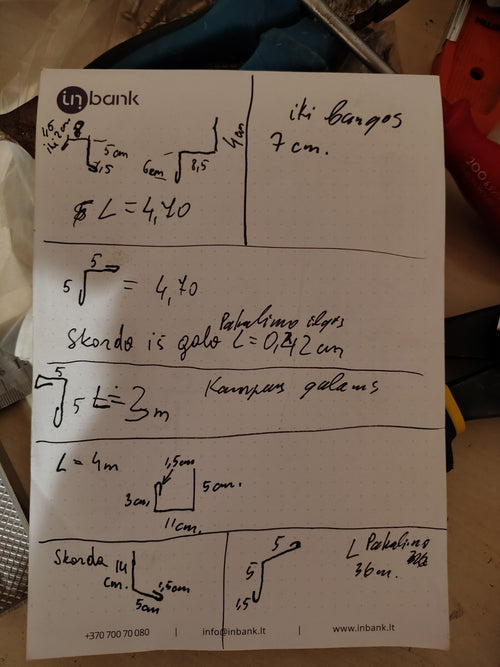 inbank
1,5
2 cm
5 cm
1,5
6cm
8,5
4cm
iki bangos
7 cm.
L = 4,70
5
5
= 4,70
Pakalimo ilgis
Skorda iš galo L = 0,42 cm
5
5
L = 3 m
Kampas galams
L = 4m
1,5cm
3cm
5 cm.
11cm.
Skorda 14
cm.
1,5cm
5cm
5
5
1,5
L Pakalimo
36 m.
+370 700 70 080 | info@inbank.lt | www.inbank.lt